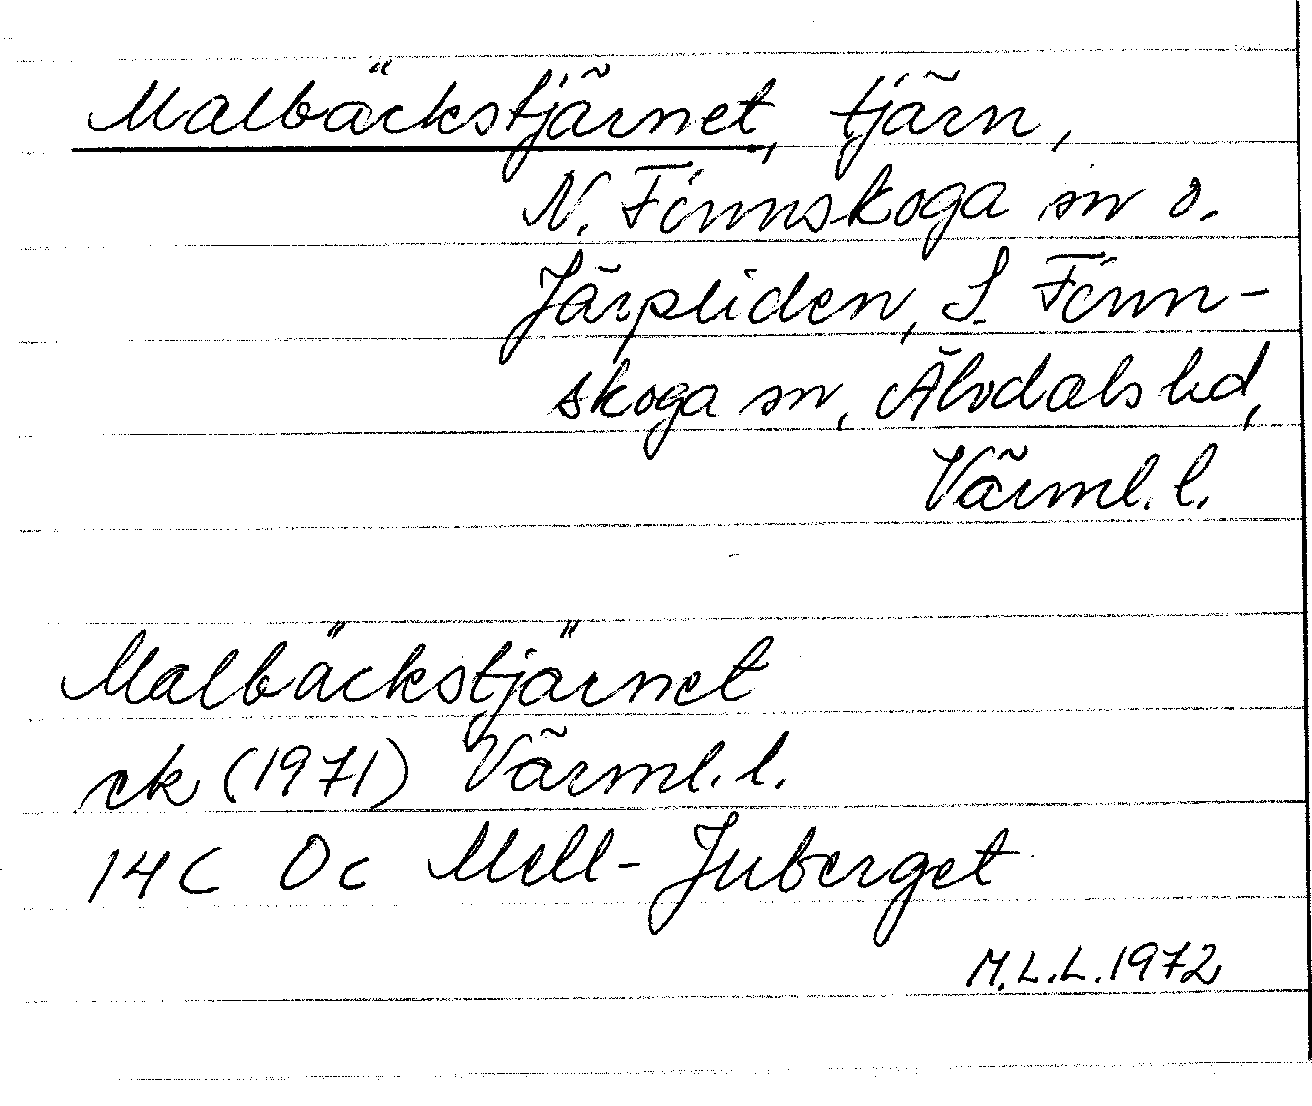 Malbäckstjärnet, tjärn,
N. Finnskoga sn o.
Järpliden, S. Finn-
skoga sn, Älvdals hd,
Värml. l.
Malbäckstjärnet
ek (1971) Värml. l.
14C 0c Mell-Juberget
M.L.L. 1972